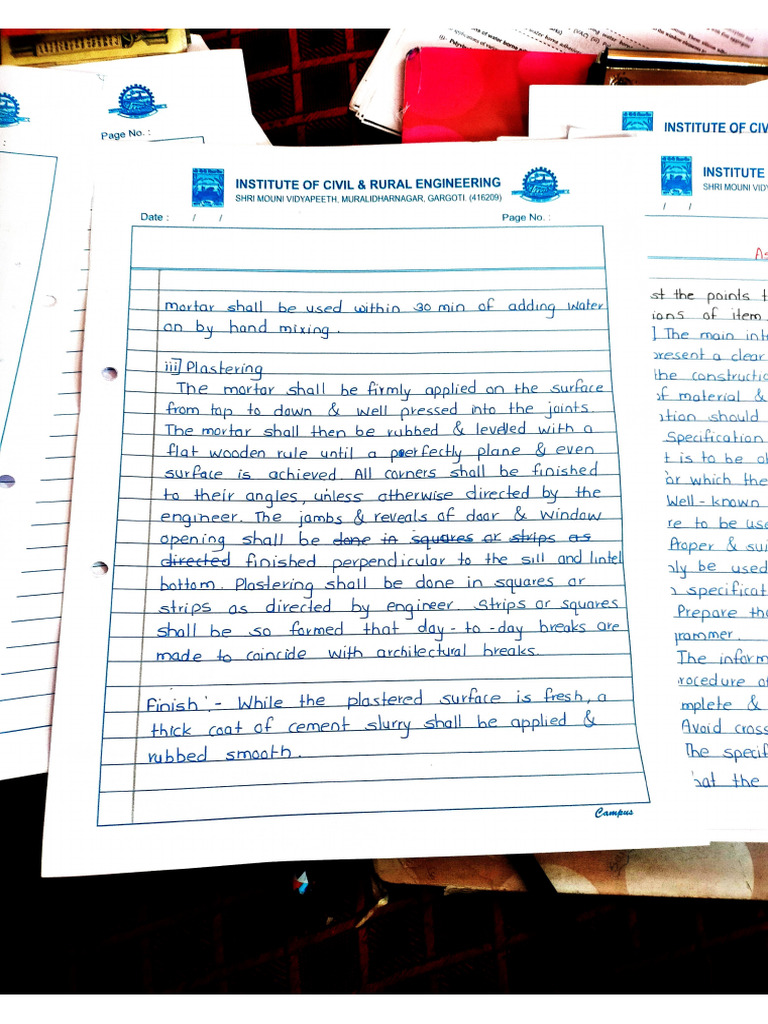 Page No. :
INSTITUTE OF CIVIL & RURAL ENGINEERING
SHRI MOUNI VIDYAPEETH, MURALIDHARNAGAR, GARGOTI. (416209)
Date : / /
Page No. :
mortar shall be used within 30 min of adding water
on by hand mixing.
iii] Plastering
The mortar shall be firmly applied on the surface
from top to down & well pressed into the joints.
The mortar shall then be rubbed & levelled with a
flat wooden rule until a perfectly plane & even
surface is achieved. All corners shall be finished
to their angles, unless otherwise directed by the
engineer. The jambs & reveals of door & window
opening shall be done in squares or strips as
directed finished perpendicular to the sill and lintel
bottom. Plastering shall be done in squares or
strips as directed by engineer. Strips or squares
shall be so formed that day-to-day breaks are
made to coincide with architectural breaks.
Finish :- While the plastered surface is fresh, a
thick coat of cement slurry shall be applied &
rubbed smooth.
Campus
INSTITUTE OF CIV
INSTITUTE
SHRI MOUNI VIDY
/ /
As
st the points t
ions of item.
] The main int
resent a clear
the constructio
of material &
tion should
Specification
t is to be
or which the
Well-known
re to be use
Proper & sui
ly be used
specificat
Prepare the
grammer.
The inform
rocedure of
mplete &
Avoid cross
The specif
hat the